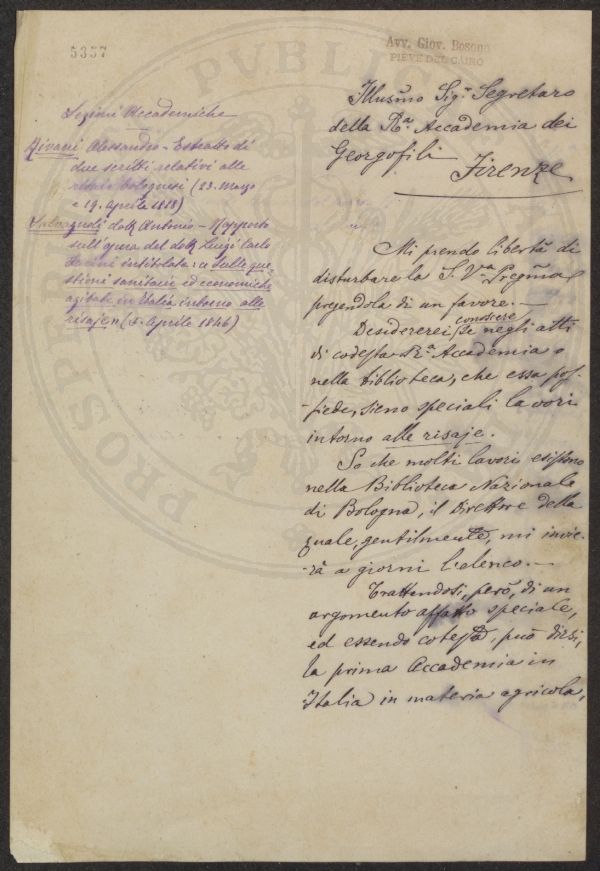 5357
Avv. Giov. Bosono
PIEVE DEL CAIRO
Lezioni Accademiche
Rivani Alessandro - Estratto di
due scritti relativi alle
risaie bolognesi (23. Marzo
e 19. Aprile 1818)
Salvagnoli dott Antonio - Rapporto
sull'opera del dott Luigi Carlo
intitolata: « Sulle que-
stioni sanitarie ed economiche
agitate in Italia intorno alle
risaje » (5. Aprile 1846)
Illusmo Sigr Segretaro
della Ra Accademia dei
Georgofili
Firenze
Mi prendo libertà di
disturbare la S. Va Pregma
pregendola di un favore. -
Desidererei conoscere se negli atti
di codesta Ra Accademia o
nella biblioteca, che essa pos-
-siede, sieno speciali lavori
intorno alle risaje.
So che molti lavori esistono
nella Biblioteca Nazionale
di Bologna, il Direttore della
quale, gentilmente, mi invie-
-rà a giorni l'elenco. -
Trattendosi, però, di un
argomento affatto speciale,
ed essendo cotesta, può dirsi,
la prima Accademia in
Italia in materia agricola,
PVBLIC
PROSPERI